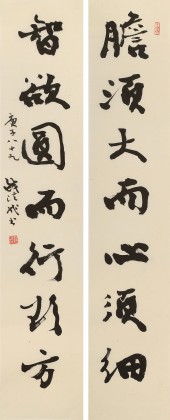 膽須大而心須細
智欲圓而行欲方
庚子八十九
錢法成書